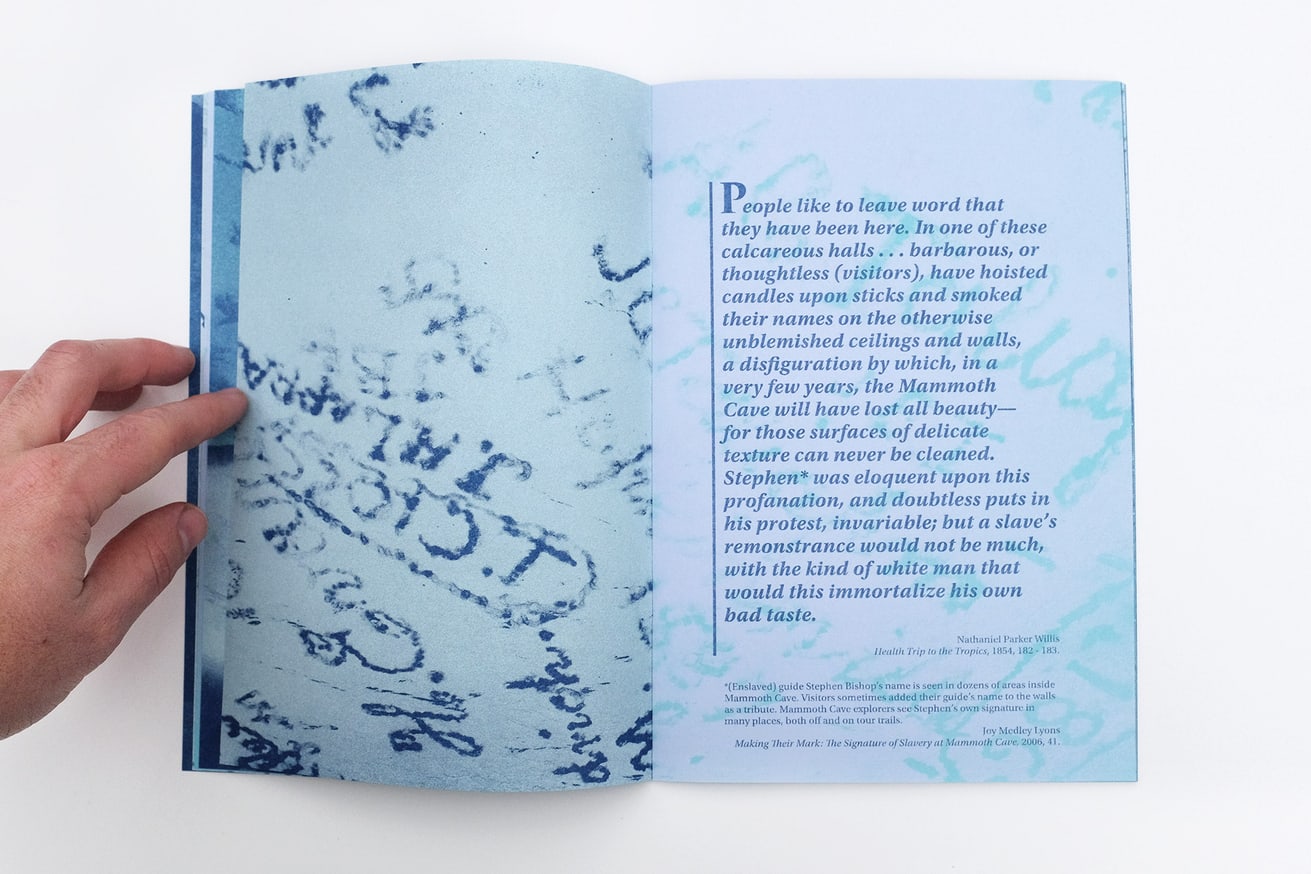 People like to leave word that
they have been here. In one of these
calcareous halls . . . barbarous, or
thoughtless (visitors), have hoisted
candles upon sticks and smoked
their names on the otherwise
unblemished ceilings and walls,
a disfiguration by which, in a
very few years, the Mammoth
Cave will have lost all beauty—
for those surfaces of delicate
texture can never be cleaned.
Stephen* was eloquent upon this
profanation, and doubtless puts in
his protest, invariable; but a slave’s
remonstrance would not be much,
with the kind of white man that
would this immortalize his own
bad taste.
Nathaniel Parker Willis
Health Trip to the Tropics, 1854, 182 - 183.
*(Enslaved) guide Stephen Bishop’s name is seen in dozens of areas inside
Mammoth Cave. Visitors sometimes added their guide’s name to the walls
as a tribute. Mammoth Cave explorers see Stephen’s own signature in
many places, both off and on tour trails.
Joy Medley Lyons
Making Their Mark: The Signature of Slavery at Mammoth Cave, 2006, 41.